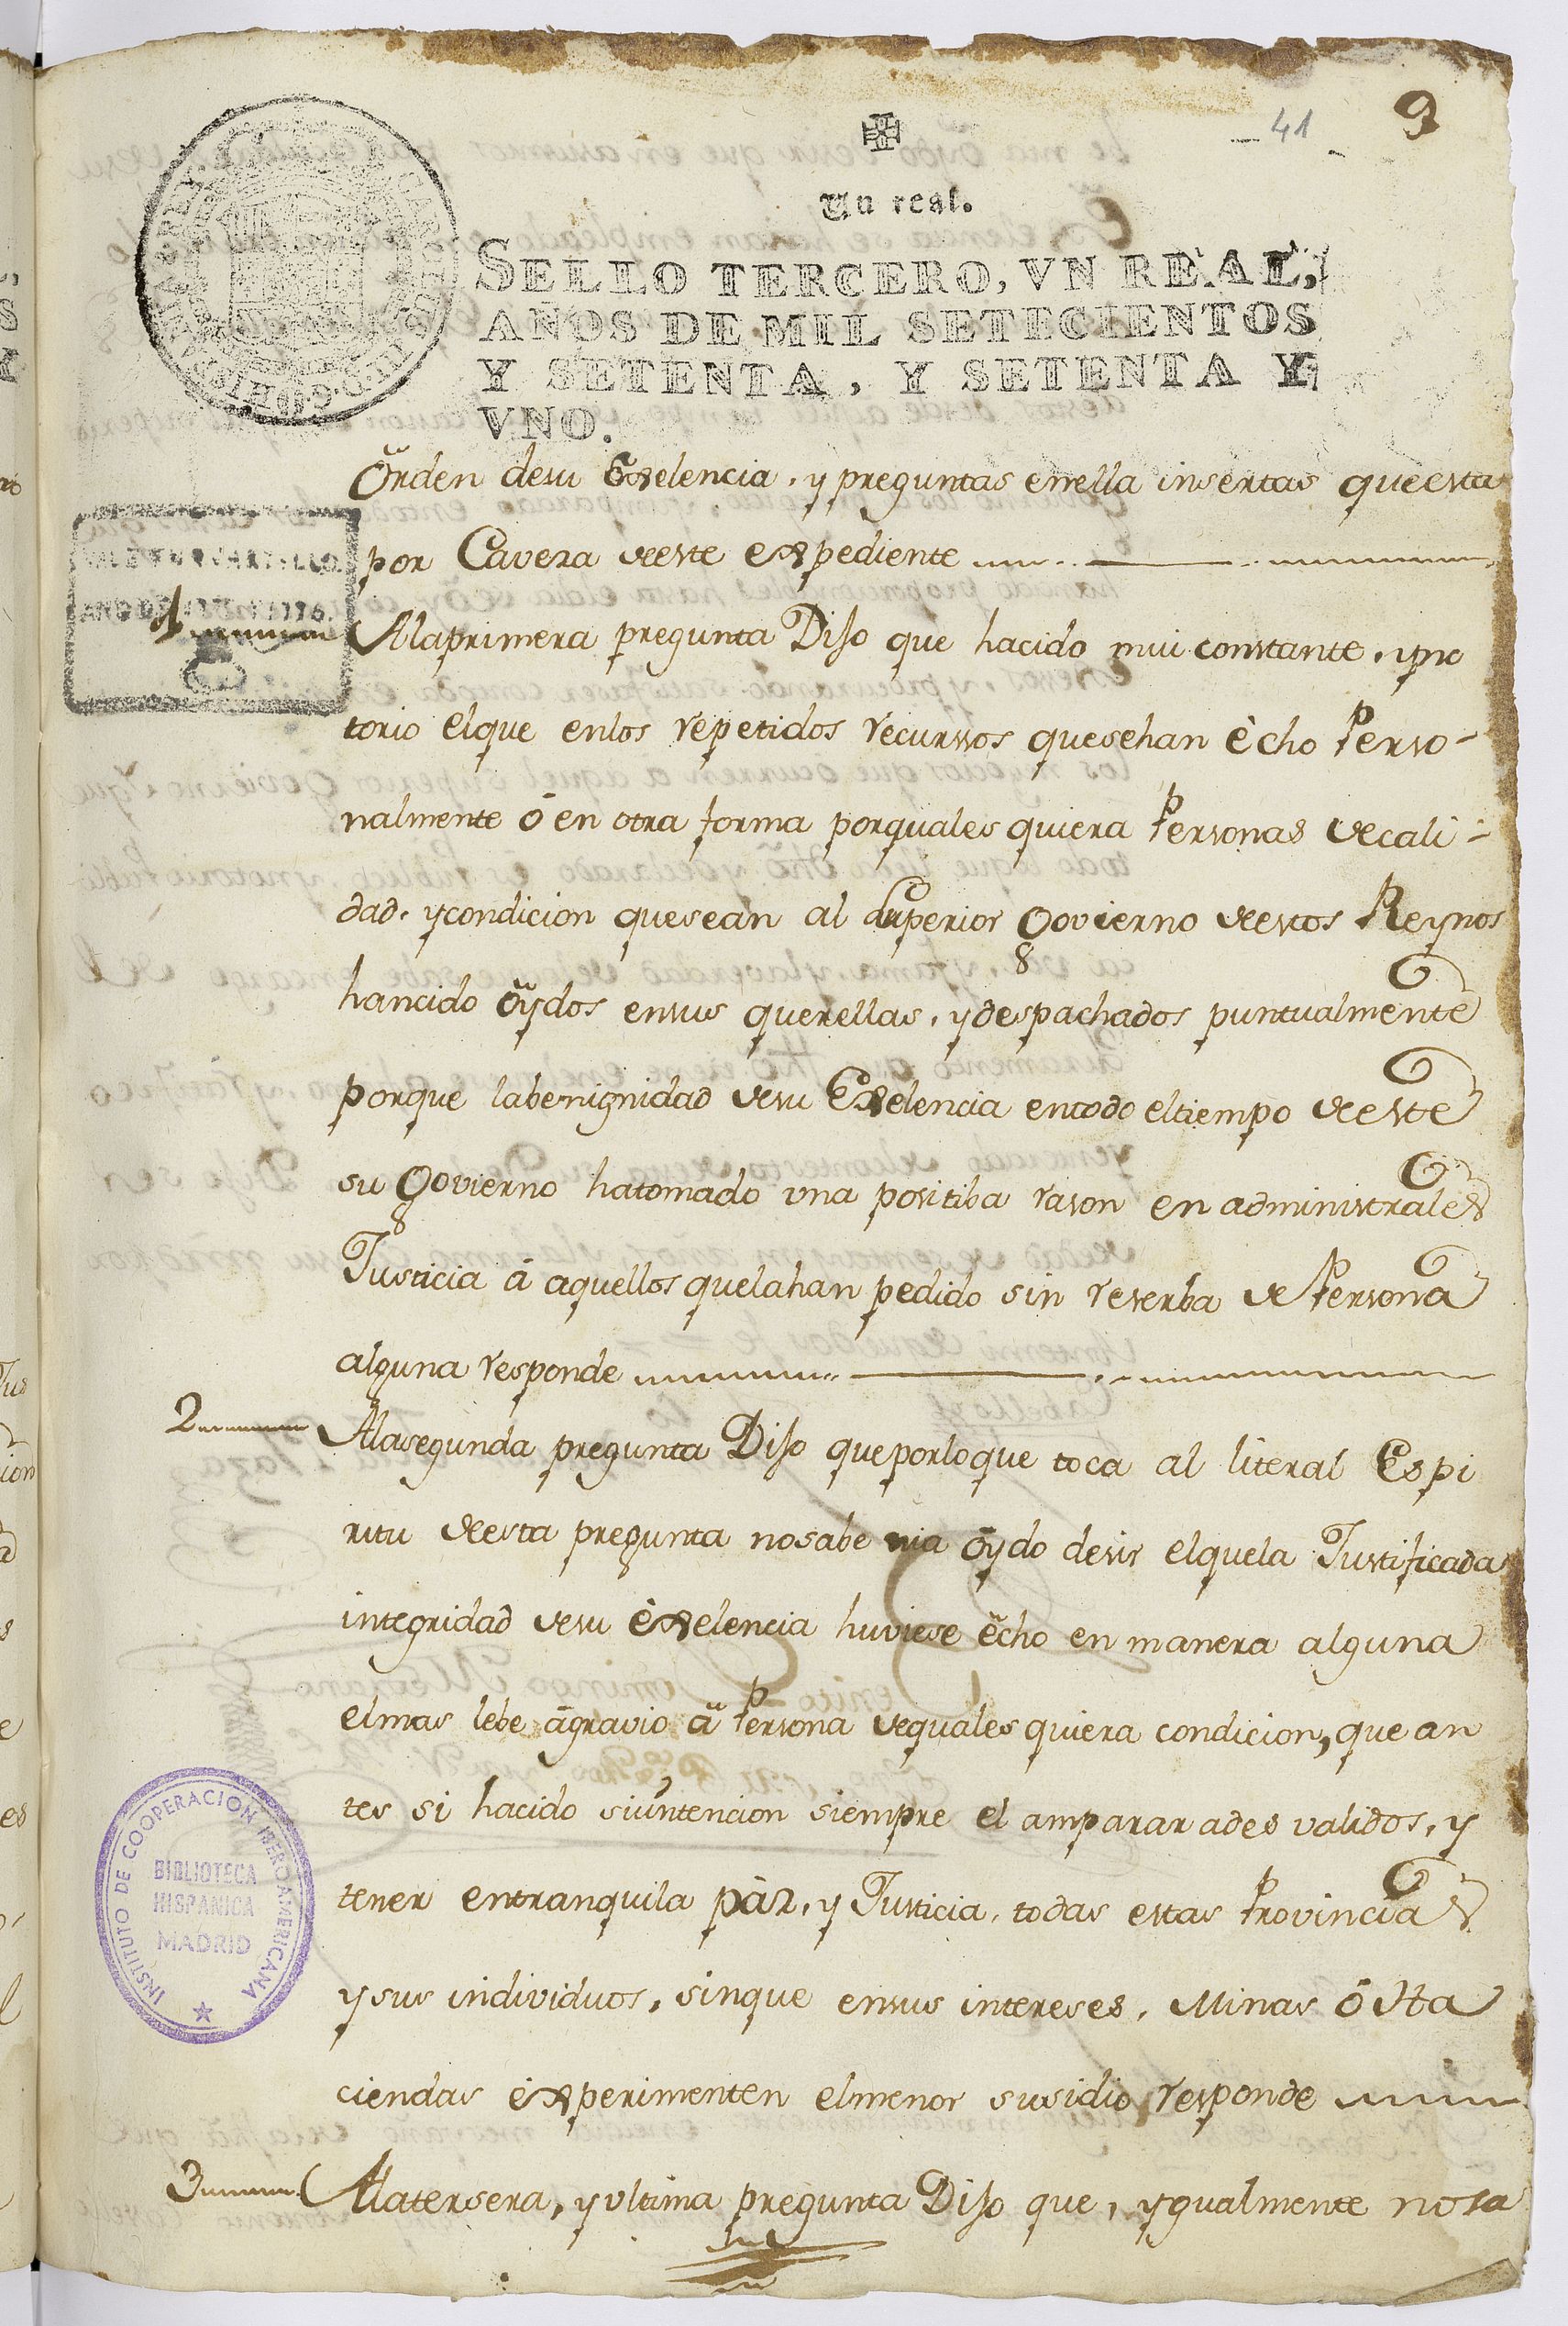 41
9
Un real.
SELLO TERCERO, VN REAL,
AÑOS DE MIL SETECIENTOS
Y SETENTA, Y SETENTA Y
VNO.
Orden desu Exelencia, y preguntas enella insertas que esta
por Cavera deeste expediente
1 Alaprimera pregunta Dijo que hacido mui constante, y no
torio elque enlos repetidos recursos quesehan echo Perso-
nalmente ó en otra forma porquales quiera Personas decali-
dad, y condicion quesean al Superior Govierno deestos Reynos
hancido oydos ensus querellas, y despachados puntualmente
porque labenignidad desu Exelencia entodo eltiempo deeste
su Govierno hatomado una positiba rason en administrales
Justicia á aquellos quelahan pedido sin reserba de Persona
alguna responde
2 Alasegunda pregunta Dijo queporloque toca al literal Espi
ritu deesta pregunta nosabe nia oydo desir elquela Justificada
integridad desu exelencia huviese echo en manera alguna
elmas lebe agravio á Persona dequales quiera condicion, que an
tes si hacido siuntencion siempre el amparar ades validos, y
tener entranquila paz, y Justicia, todas estas Provincias
y sus individuos, sinque ensus intereses, Minas ó Ha
ciendas experimenten elmenor susidio, responde
3 Alatersera, y ultima pregunta Dijo que, ygualmente nosa
INSTITUTO DE COOPERACION IBEROAMERICANA
BIBLIOTECA
HISPANICA
MADRID